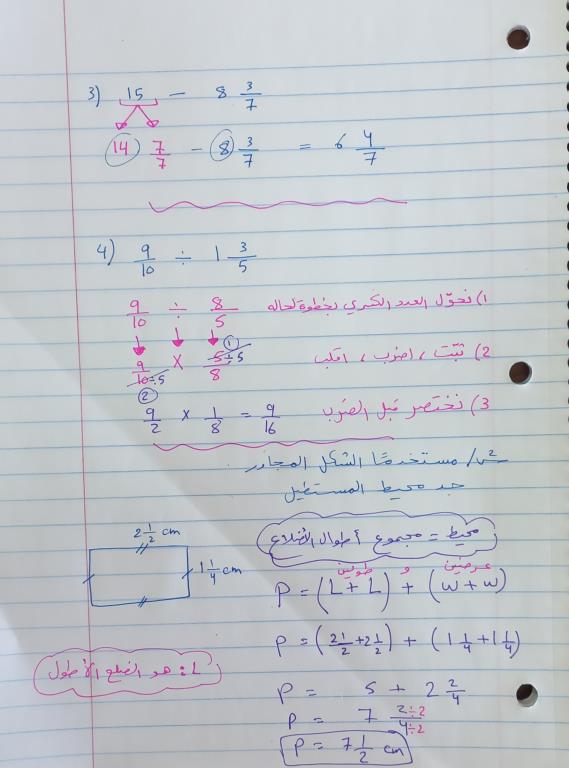 3) 15 - 8 3/7
14 7/7 - 8 3/7 = 6 4/7
4) 9/10 ÷ 1 3/5
9/10 ÷ 8/5 1) نحوّل العدد الكسري بخطوة لحاله
9/10÷5 × 5÷5/8 2) ثبّت ، اضرب ، اقلب
② ①
9/2 × 1/8 = 9/16 3) نختصر قبل الضرب
س2/ مستخدمًا الشكل المجاور
جد محيط المستطيل
2 1/2 cm
1 1/4 cm
محيط = مجموع أطوال الأضلاع
طولين و عرضين
P = (L + L) + (W + W)
P = (2 1/2 + 2 1/2) + (1 1/4 + 1 1/4)
L: هو الضلع الأطول
P = 5 + 2 2/4
P = 7 2÷2/4÷2
P = 7 1/2 cm